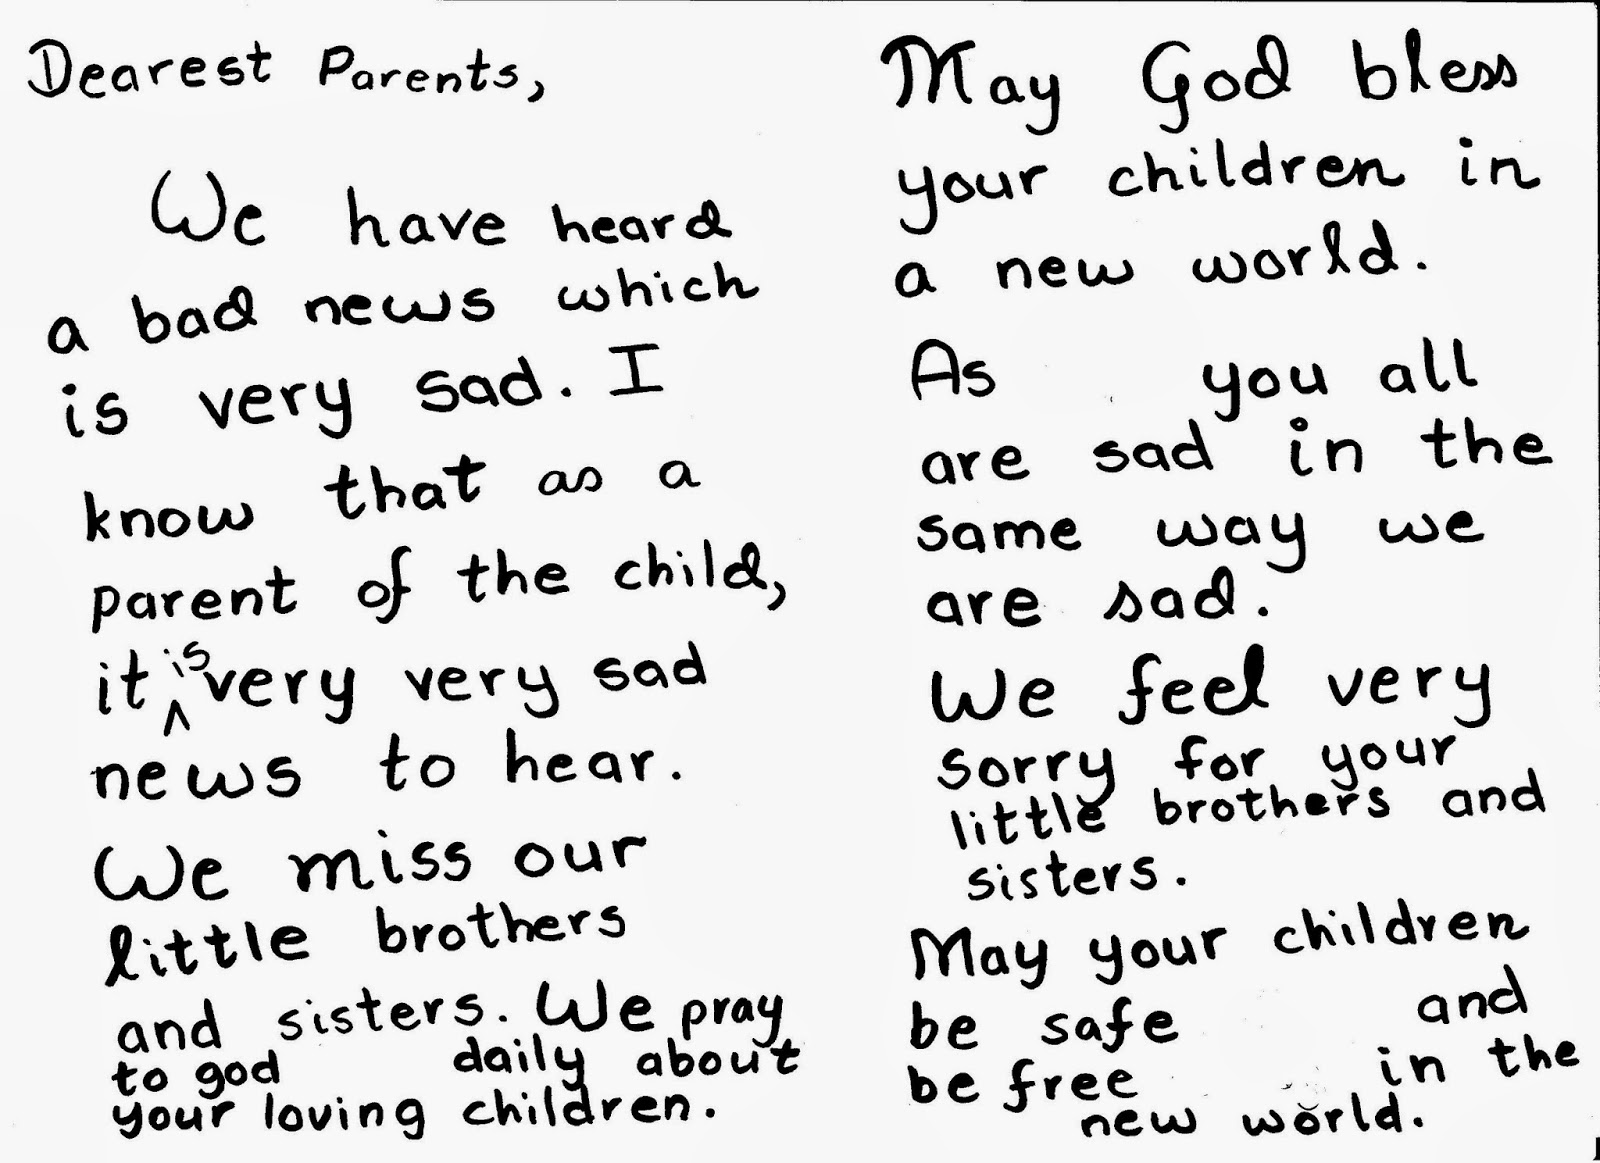 Dearest Parents,
We have heard
a bad news which
is very sad. I
know that as a
parent of the child,
it is very very sad
news to hear.
We miss our
little brothers
and sisters. We pray
to god daily about
your loving children.
May God bless
your children in
a new world.
As you all
are sad in the
same way we
are sad.
We feel very
sorry for your
little brothers and
sisters.
May your children
be safe and
be free in the
new world.